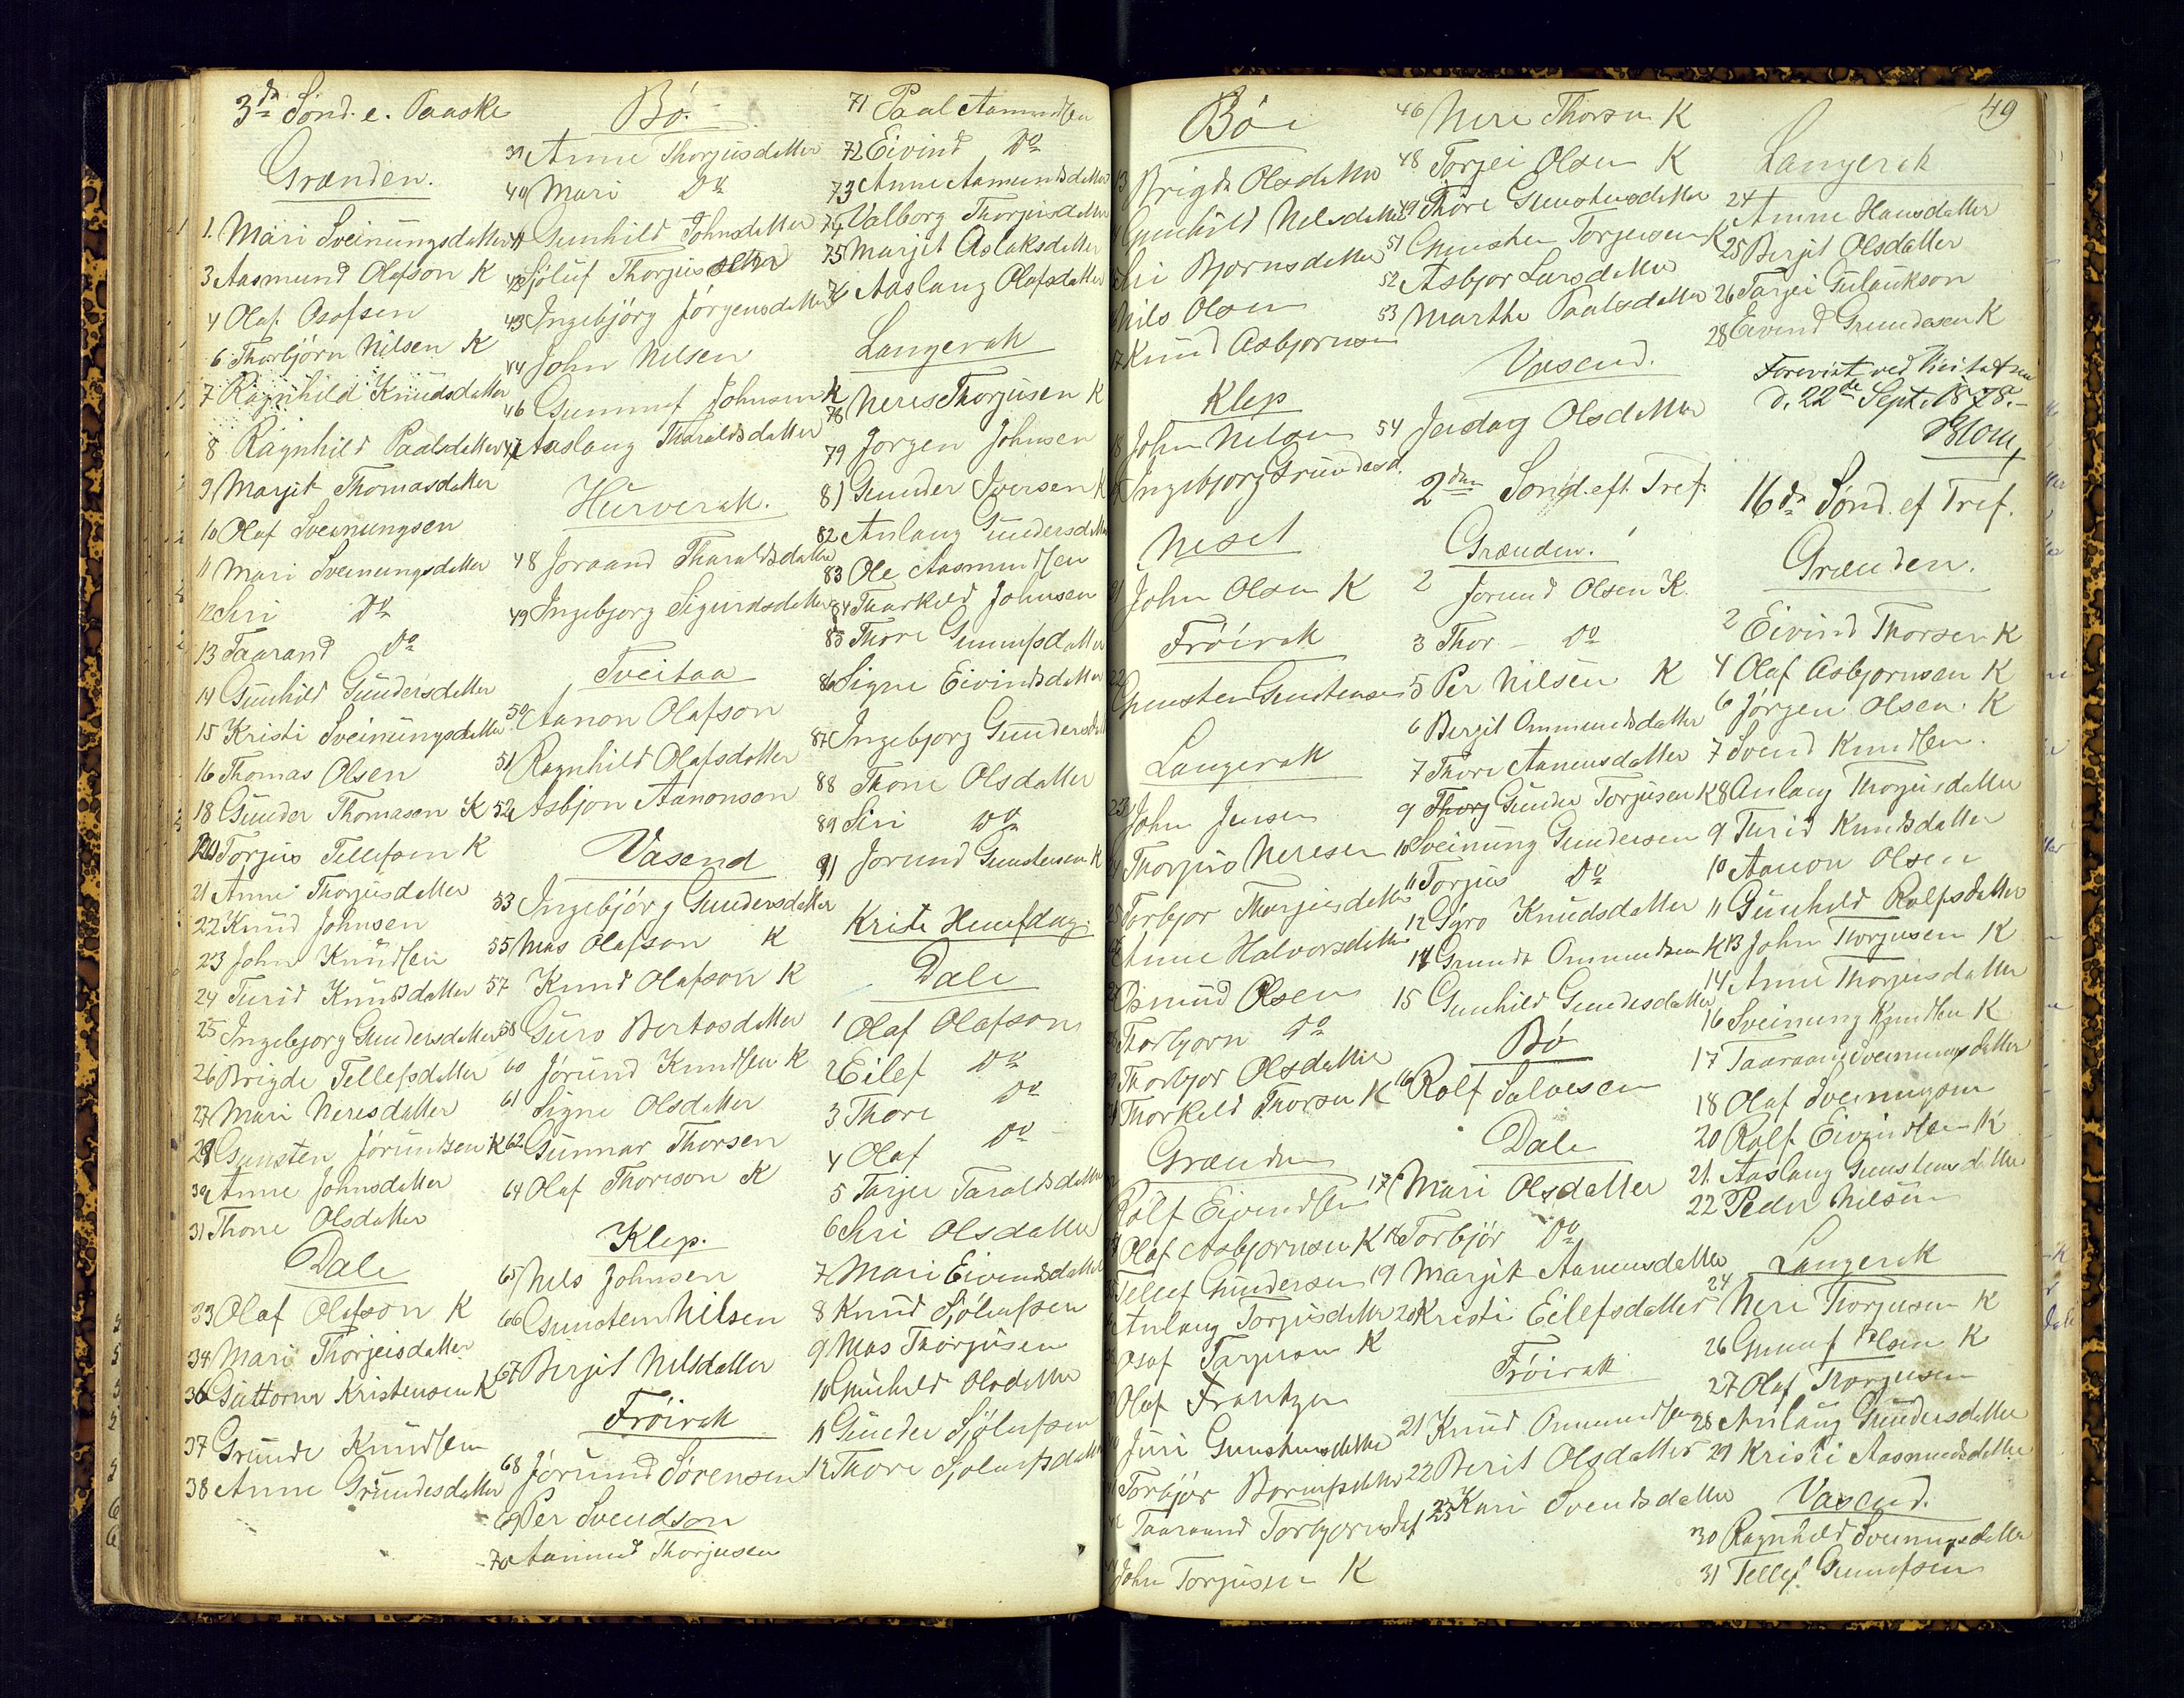 3dn Sönd. e. Paaske
Grænden.
1. Mari Sveinungsdatter
3 Aasmund Olafson K
4 Olaf Osofsen
6 Thorbjörn Nilsen K
7 Ragnhild Knudsdatter
8 Ragnhild Paalsdatter
9 Margit Thomasdatter
10 Olaf Sveinungsen
11 Mari Sveinungsdatter
12 Siri Do
13 Taarand Do
14 Gunhild Gundersdatter
15 Kristi Sveinungsdatter
16 Thomas Olsen
18 Gunder Thomason K
20 Torjus Tellefsen K
21 Anne Thorjusdatter
22 Knud Johnsen
23 John Knudsen
24 Turid Knudsdatter
25 Ingebjorg Gundersdatter
26 Brigde Tellefsdatter
27 Mari Neresdatter
29 Gunsten Jörundsen K
30 Anne Johnsdatter
31 Thone Olsdatter
Dale
33 Olaf Olafson K
34 Mari Thorjeisdatter
36 Guttorm Kristensen K
37 Grunde Knudsen
38 Anne Grundesdatter
Bö.
39 Anne Thorjusdatter
40 Mari Do
41 Gunhild Johnsdatter
42 Sjöluf Thorjus
43 Ingebjörg Jörgensdatter
44 John Nilsen
46 Gunnuf Johnsen K
47 Aaslaug Tharaldsdatter
Hurverak.
48 Joraand Tharaldsdatter
49 Ingebjorg Sigurdsdatter
Tveitaa
50 Aanon Olafson
51 Ragnhild Olafsdatter
52 Asbjon Aanonson
Vasend
53 Ingebjörg Gundersdatter
55 Mas Olafson K
57 Knud Olafson K
58 Guro Bertosdatter
60 Jörund Knudsen K
61 Signe Olsdatter
62 Gunnar Thorsen
64 Olaf Thorison K
Klep.
65 Nils Johnsen
66 Gunsten Nilsen
67 Bergit Nilsdatter
Fröirak
68 Jörund Sörensen
69 Per Svendson
70 Aamund Thorjusen
71 Paal Aamundsen
72 Eivind Do
73 Anne Aamundsdatter
74 Valborg Thorjusdatter
75 Marjit Aslaksdatter
76 Aaslaug Olafsdatter
Langerak
78 Neres Thorjusen K
79 Jorgen Johnsen
81 Gunder Iversen K
82 Anlaug Gundersdatter
83 Ole Aasmundsen
84 Tharkild Johnsen
85 Thore Gunnufsdatter
86 Signe Eivindsdatter
87 Ingebjorg Gundersdatter
88 Thone Olsdatter
89 Siri Do
91 Jorund Gundersen K
Kristi Himlfdag.
Dale
1 Olaf Olafson
2 Eilef Do
3 Thore Do
4 Olaf Do
5 Tarjer Taraldsdatter
6 Siri Olsdatter
7 Mari Eivindsdatter
8 Knud Sjölufsen
9 Mas Thorjusen
10 Gunhild Olsdatter
11 Gunder Sjölufsen
12 Thore Sjolufsdatter
Bö
13 Brigde Olsdatter
Gunhild Nilsdatter
Siri Bjornsdatter
Nils Olsen
17 Knud Asbjornsen
Klep
18 John Nilsen
Ingebjorg Grundesd.
Neset
21 John Olsen K
Fröirak
22 Gunsten Gunstensen
Langerak
23 John Jensen
24 Thorjus Neresen
25 Torbjor Thorjusdatter
Anne Halvorsdatter
Osmund Olsen
Thorbjorn Do
Thorbjor Olsdatter
Thorkeld Thorsen K
Grænden
Rolf Eivendsen
Olaf Asbjornsen K
Tellef Gundersen
Anlaug Torjusdatter
Osof Tarjeson K
Olaf Frantzen
Juri Gunstensdatter
Torbjör Borufsdatter
Taaraand Torbjornsdat
John Torjusen K
46 Nere Thorsen K
48 Torjei Olsen K
49 Thore Gunstensdatter
51 Gunsten Torjusen K
52 Asbjor Larsdatter
53 Marthe Paalsdatter
Vasend.
54 Jerdag Olsdatter
2den Sönd. eft. Tref.
Grænden.
2 Jorund Olsen K.
3 Thor - Do
5 Per Nilsen K
6 Bergit Ommundsdatter
7 Thore Aanensdatter
9 Gunder Torjusen K
10 Sveinung Gundersen
11 Torjus Do
12 Gyro Knudsdatter
14 Grunde Ommundsen K
15 Gunhild Gundesdatter
Bö
16 Rolf Salvesen
Dale
17 Mari Olsdatter
18 Torbjör Do
19 Margit Aanensdatter
20 Kristi Eilefsdatter
Fröirak
21 Knud Ommundsen
22 Berit Olsdatter
23 Kari Svendsdatter
49
Langerak
24 Anne Hansdatter
25 Bergit Olsdatter
26 Tarjei Gulaukson
28 Eivind Grundesen K
Forevist ved Visitatsen
d. 22de Sept. 1878.-
Blom
16dn Sönd. ef Tref.
Grænden.
2 Eivind Thorsen K
4 Olaf Asbjornsen K
6 Jörgen Olsen. K
7 Svend Knudsen.
8 Anlaug Thorjusdatter
9 Turid Knudsdatter
10 Aanon Olsen
11 Gunhild Rolfsdatter
13 John Thorjusen K
14 Anne Thorjusdatter
16 Sveinung Knudsen K
17 Taaraand Sveinungsdatter
18 Olaf Sveinungsen
20 Rolf Eivindsen K
21. Aaslaug Gunstensdatter
22 Peder Nilsen
Langerak
24 Neri Thorjusen K
26 Gunuf Olsen K
27 Olaf Thorjusen
28 Anlaug Gundersdatter
29 Kristi Aasmundsdatter
Vasend.
30 Ragnhild Sveinungsdatter
31 Tellef Gunufsen